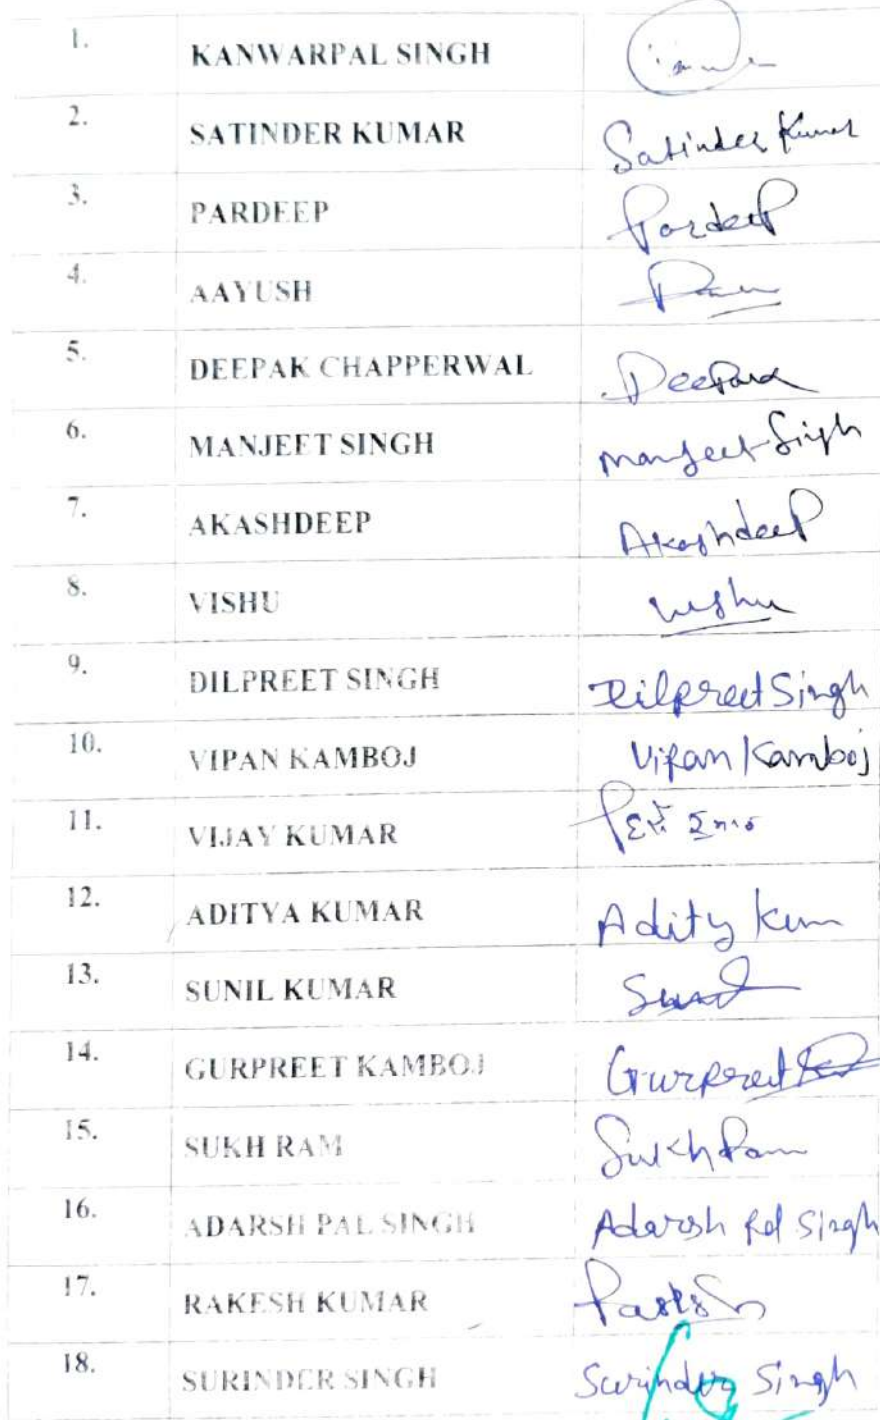 1. KANWARPAL SINGH
2. SATINDER KUMAR Satinder Kumar
3. PARDEEP Pardeep
4. AAYUSH
5. DEEPAK CHAPPERWAL Deepak
6. MANJEET SINGH Manjeet Singh
7. AKASHDEEP Akashdeep
8. VISHU Vishu
9. DILPREET SINGH Dilpreet Singh
10. VIPAN KAMBOJ Vipan Kamboj
11. VIJAY KUMAR
12. ADITYA KUMAR Adity Kum
13. SUNIL KUMAR
14. GURPREET KAMBOJ Gurpreet
15. SUKH RAM Sukh Ram
16. ADARSH PAL SINGH Adarsh Pal Singh
17. RAKESH KUMAR
18. SURINDER SINGH Surinder Singh